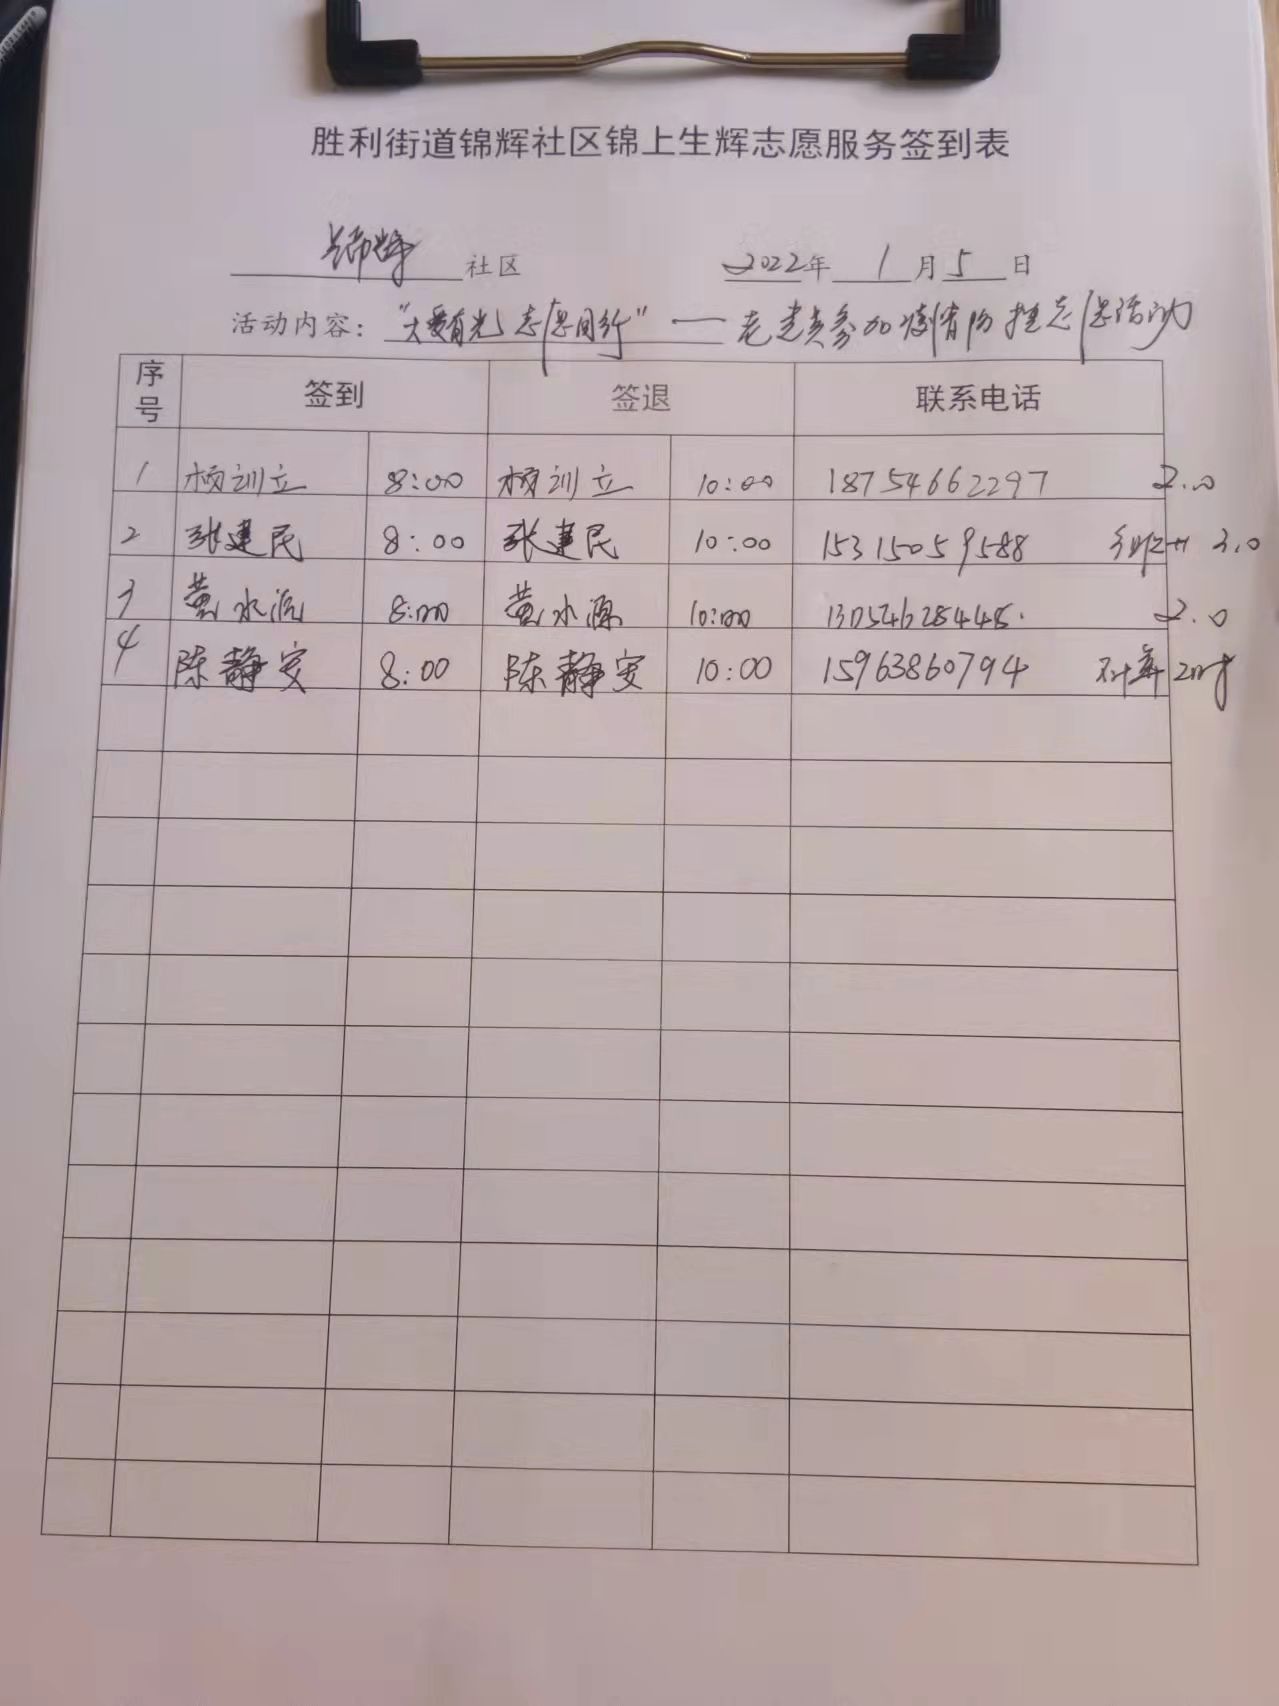 胜利街道锦辉社区锦上生辉志愿服务签到表
锦辉 社区 2022年 1 月 5 日
活动内容："大爱有光 志愿同行" — 老党员参加疫情防控志愿活动
序号 签到 签退 联系电话
1 训立 8:00 训立 10:00 18754662297 2.0
2 张建民 8:00 张建民 10:00 15315059588 3.0
3 黄水源 8:00 黄水源 10:00 13054628448. 2.0
4 陈静安 8:00 陈静安 10:00 15963860794 2时